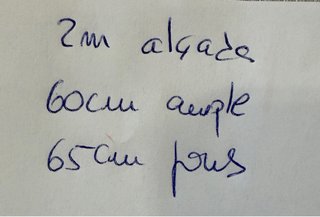 2m alçada
60cm ample
65cm fons